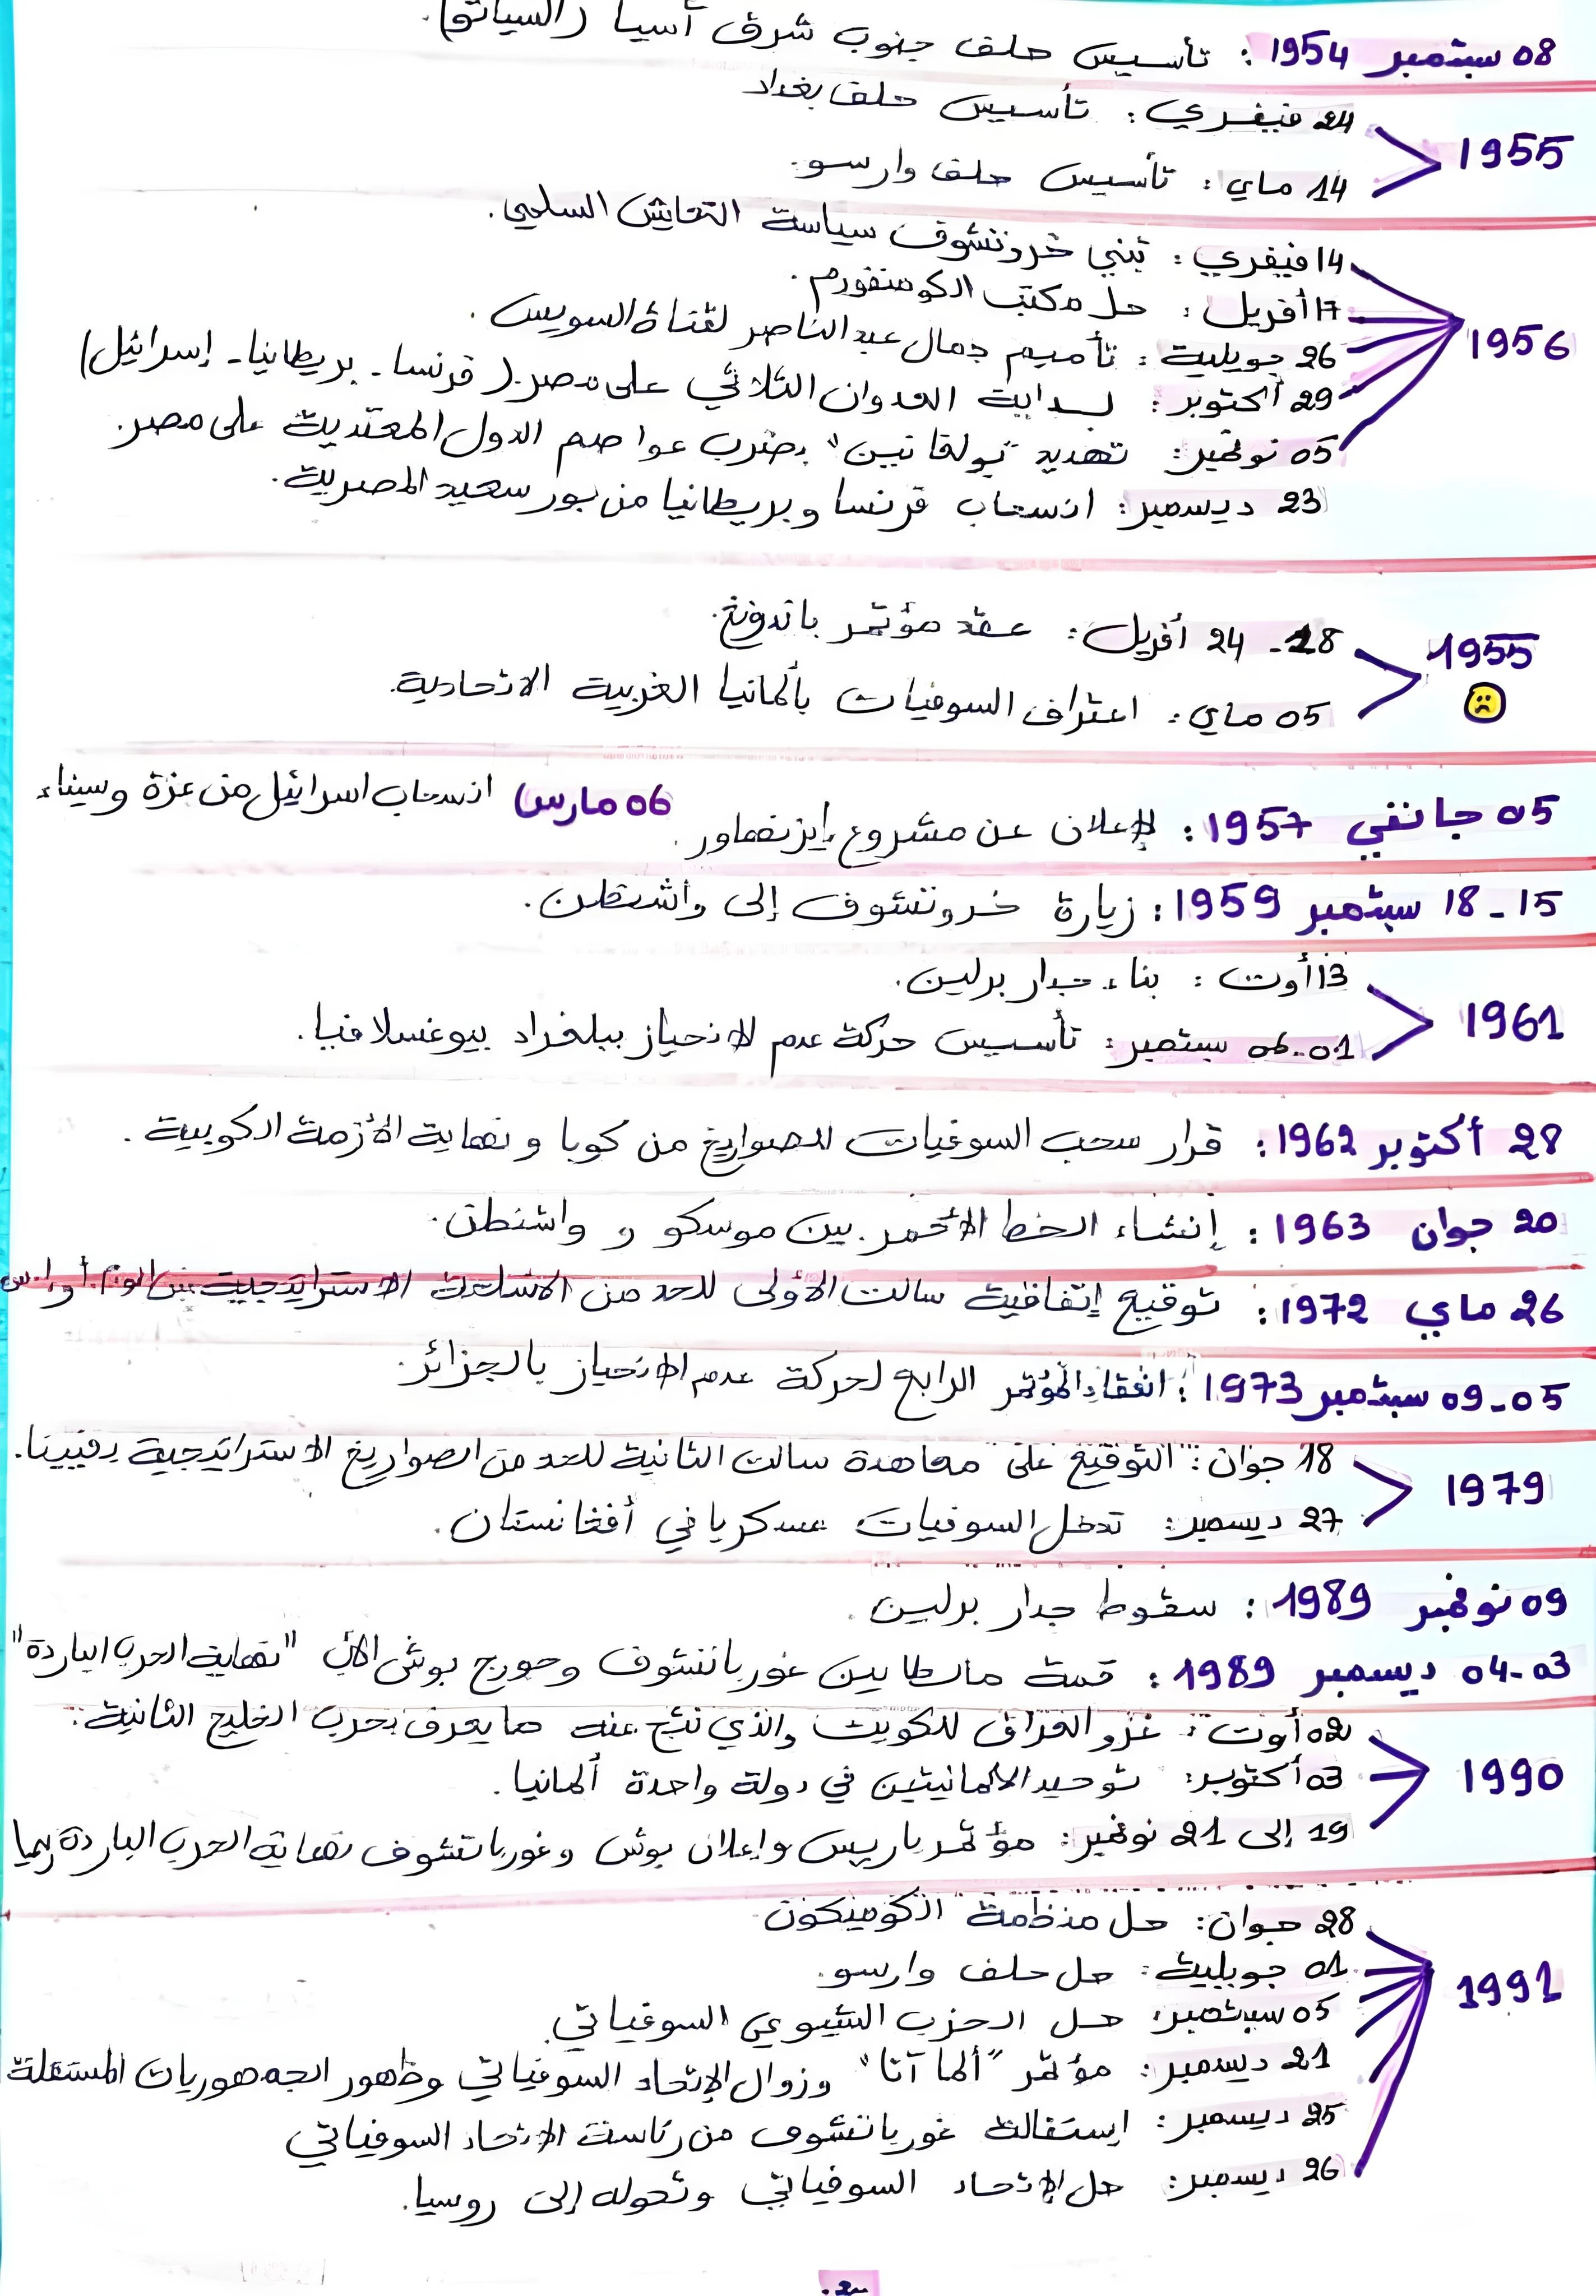 08 سبتمبر 1954 : تأسيس حلف جنوب شرق آسيا (السياتو).
1955
24 فيفري : تأسيس حلف بغداد
14 ماي : تأسيس حلف وارسو.
1956
14 فيفري : تبني خروتشوف سياسة التعايش السلمي.
17 أفريل : حل مكتب الكومنفورم.
26 جويلية : تأميم جمال عبد الناصر لقناة السويس.
29 أكتوبر : بداية العدوان الثلاثي على مصر. (فرنسا - بريطانيا - إسرائيل)
05 نوفمبر : تهديد "بولقانين" بضرب عواصم الدول المعتدية على مصر.
23 ديسمبر : انسحاب فرنسا وبريطانيا من بور سعيد المصرية.
1955 ☹
18 - 24 أفريل : عقد مؤتمر باندونغ.
05 ماي : اعتراف السوفيات بألمانيا الغربية الاتحادية.
05 جانفي 1957 : الإعلان عن مشروع إيزنهاور. 06 مارس انسحاب اسرائيل من غزة وسيناء
15 - 18 سبتمبر 1959 : زيارة خروتشوف إلى واشنطن.
1961
13 أوت : بناء جدار برلين.
01-06 سبتمبر : تأسيس حركة عدم الانحياز ببلغراد بيوغسلافيا.
28 أكتوبر 1962 : قرار سحب السوفيات للصواريخ من كوبا ونهاية الأزمة الكوبية.
20 جوان 1963 : إنشاء الخط الأحمر بين موسكو و واشنطن.
26 ماي 1972 : توقيع إتفاقية سالت الأولى للحد من الأسلحة الاستراتيجية بين الو.م.أ و إ.س
05-09 سبتمبر 1973 : انعقاد المؤتمر الرابع لحركة عدم الانحياز بالجزائر.
1979
18 جوان : التوقيع على معاهدة سالت الثانية للحد من الصواريخ الاستراتيجية بفيينا.
27 ديسمبر : تدخل السوفيات عسكريا في أفغانستان.
09 نوفمبر 1989 : سقوط جدار برلين.
03-04 ديسمبر 1989 : قمة مالطا بين غورباتشوف وجورج بوش الأب "نهاية الحرب الباردة"
1990
02 أوت : غزو العراق للكويت والذي نتج عنه ما يعرف بحرب الخليج الثانية.
03 أكتوبر : توحيد الألمانيتين في دولة واحدة ألمانيا.
19 إلى 21 نوفمبر : مؤتمر باريس وإعلان بوش وغورباتشوف نهاية الحرب الباردة رسميا
1991
28 جوان : حل منظمة الكوميكون
01 جويلية : حل حلف وارسو.
05 سبتمبر : حل الحزب الشيوعي السوفياتي.
21 ديسمبر : مؤتمر "ألما آتا" وزوال الإتحاد السوفياتي وظهور الجمهوريات المستقلة
25 ديسمبر : إستقالة غورباتشوف من رئاسة الاتحاد السوفياتي
26 ديسمبر : حل الإتحاد السوفياتي وتحوله إلى روسيا.